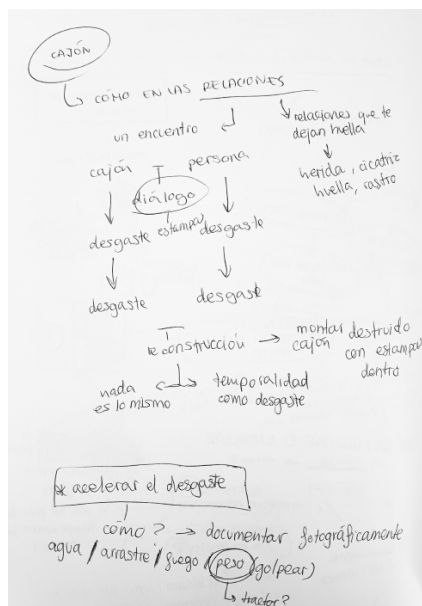 CAJÓN
↳ CÓMO EN LAS RELACIONES
un encuentro
relaciones que te
dejan huella
herida, cicatriz
huella, rastro
cajón persona
diálogo
desgaste estampar desgaste
desgaste desgaste
reconstrucción → montar destruido
cajón con estampas
dentro
nada temporalidad
es lo mismo como desgaste
* acelerar el desgaste
cómo? → documentar fotográficamente
agua / arrastre / fuego / peso (golpear)
↳ tractor?